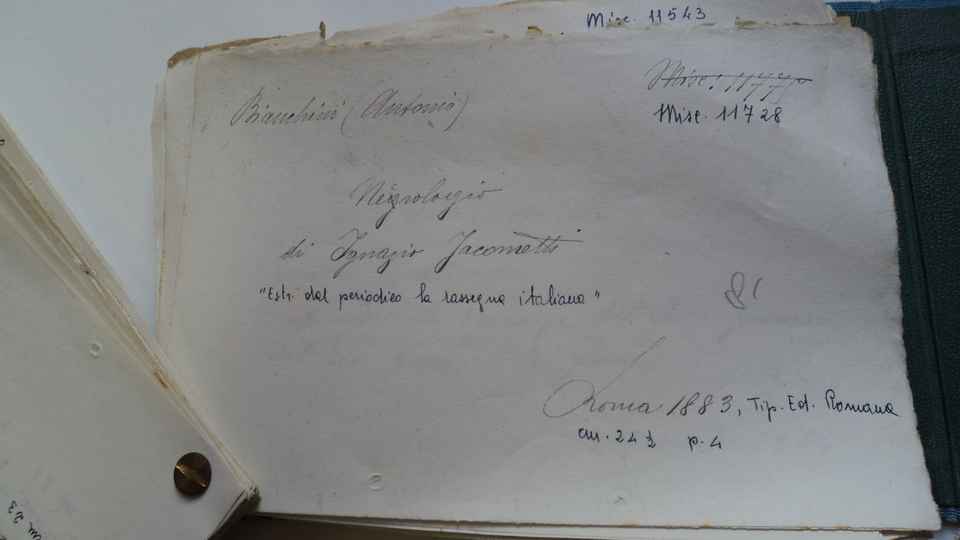 Misc. 11543
Misc. 1177
Misc. 11728
Bianchini (Antonio)
Necrologio
di Ignazio Jacometti
"Estr. dal periodico la rassegna italiana"
Roma 1883, Tip. Ed. Romana
cm. 24 p. 4
cm 23